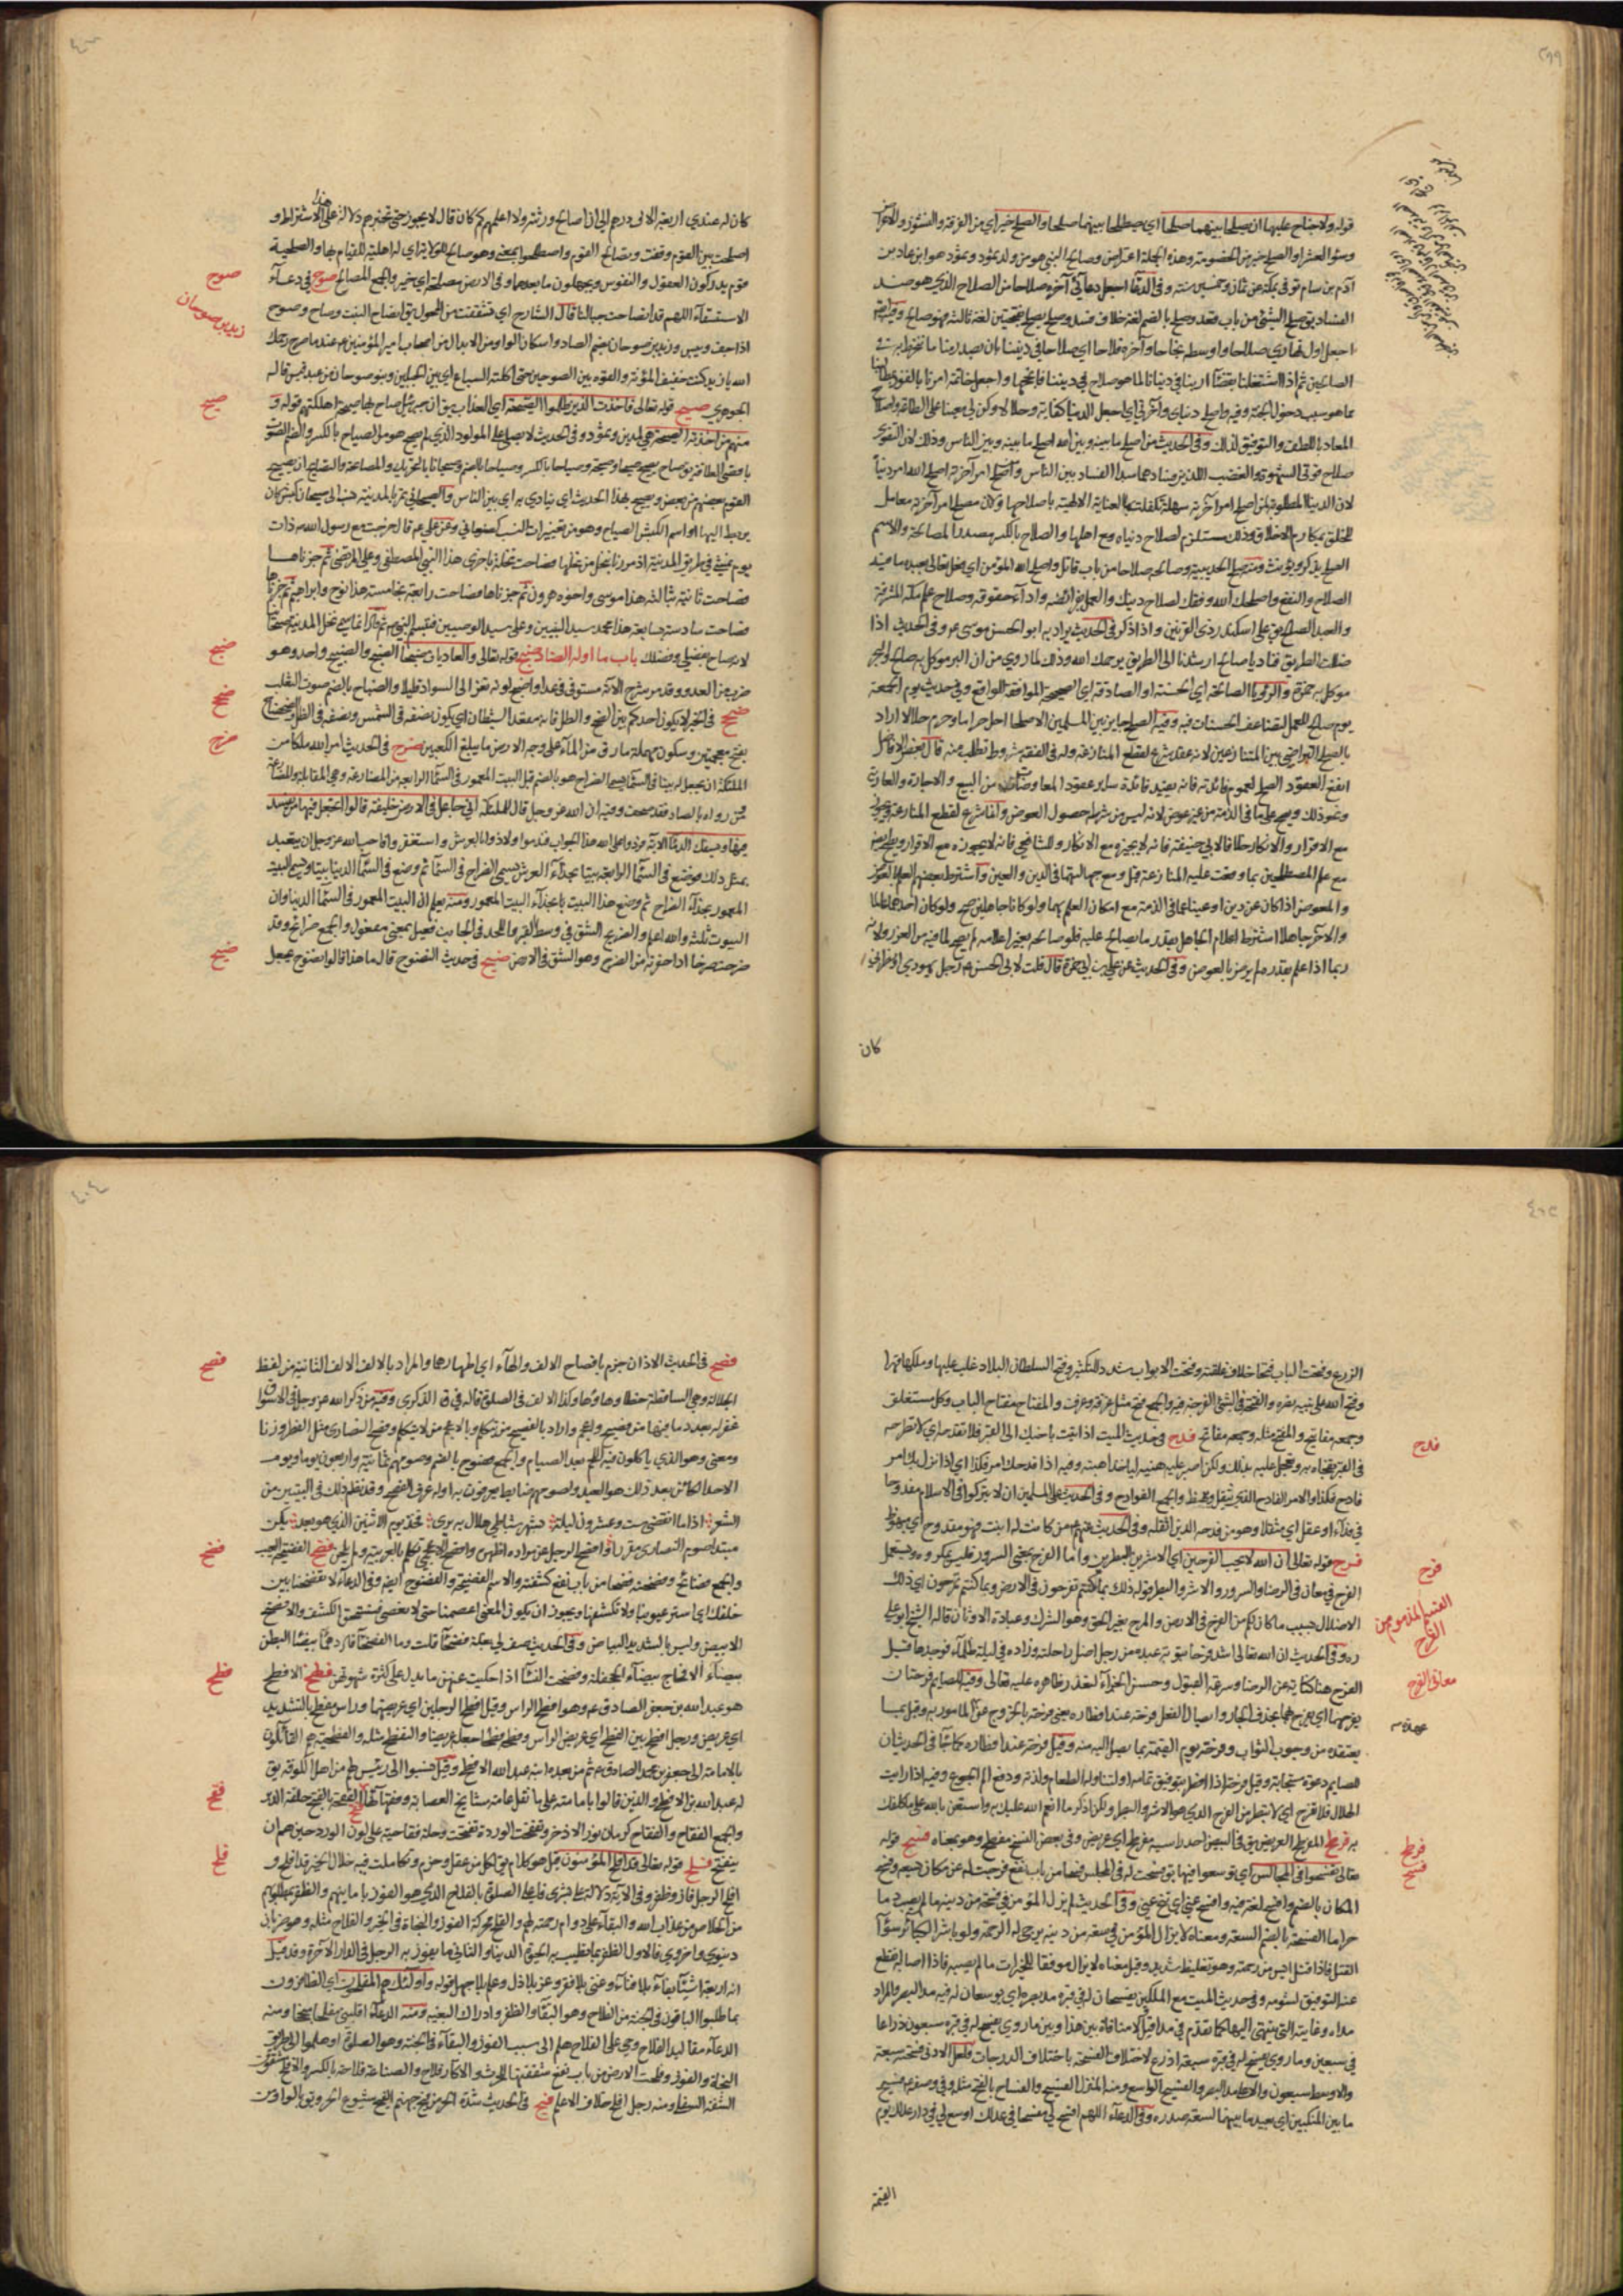 ٣٩٩
قوله ولا جناح عليهما ان يصلحا بينهما صلحا اي يصطلحا بينهما صلحا والصلح خير اي من الفرقة والنشوز والاعراض
وسوء العشرة او الصلح خير من الخصومة وهذه الجملة اعتراض وصالح النبي هو من ولد ثمود وثمود هو ابن عاد بن
آدم بن سام توفي بمكة عن ثمان وخمسين سنة وفي الدعاء اجعل دعائي آخره صلاحا من الصلاح الذي هو ضد
الفساد يق صلح الشيء من باب قعد وصلح بالضم لغة خلاف فسد وصلح يصلح بفتحتين لغة ثالثة فهو صالح
اجعل اول نهاري صلاحا واوسطه نجاحا وآخره فلاحا اي صلاحا في ديننا بان يصدر منا ما ننخرط به في
الصالحين ثم اذا اشتغلنا بقضاء اربنا في دنيانا لما هو صلاح في ديننا فانجحها واجعل خاتمة امرنا بالفوز بمطالبنا
مما هو سبب دخول الجنة وفيه واصلح دنياي وآخرتي اي اجعل الدنيا كفاية وحلالا وكن لي معينا على الطاقة واصلاح
المعاد باللطف والتوفيق لذلك وفي الحديث من اصلح ما بينه وبين الله اصلح ما بينه وبين الناس وذلك لان التقوى
صلاح قوتي الشهوة والغضب اللذين فسادهما مبدأ الفساد بين الناس ومن اصلح امر آخرته اصلح الله امر دنياه
لان الدنيا المطلوبة لمن اصلح امر آخرته سهلة تكفلت بها العناية الالهية باصلاحها ولان مصلح امر آخرته معامل
للخلق بمكارم الاخلاق وذلك مستلزم لصلاح دنياه مع اهلها والصلاح بالكسر مصدر المصالحة والاسم
الصلح يذكر ويؤنث ومنه صلح الحديبية وصالحه صلاحا من باب قاتل واصلح الله المؤمن اي فعل تعالى بعبده ما فيه
الصلاح والنفع واصلحك الله وفقك لصلاح دينك والعمل بفرائضه واداء حقوقه وصلاح علم مكة المشرفة
والعبد الصالح يق على اسكندر ذي القرنين واذا ذكر في الحديث يراد به ابو الحسن موسى ع وفي الحديث اذا
ضللت الطريق فناد يا صالح ارشدنا الى الطريق يرحمك الله وذلك لما روي من ان البر موكل به صالح والبحر
موكل به حمزة والرؤيا الصالحة اي الحسنة او الصادقة اي الصحيحة الموافقة للواقع وفي حديث يوم الجمعة
يوم صالح للعمل لتضاعف الحسنات فيه وفيه الصلح جايز بين المسلمين الا صلحا احل حراما وحرم حلالا اراد
بالصلح التراضي بين المتنازعين لانه عقد شرع لقطع المنازعة وله في الفقه شروط تطلب منه قال بعض الافاضل
انفع العقود الصلح لعموم فائدته فانه يفيد فائدة ساير عقود المعاوضات من البيع والاجارة والعارية
ونحو ذلك ويصح على ما في الذمة من غير عوض لانه ليس من شرطه حصول العوض وانما شرع لقطع المنازعة ويجوز
مع الاقرار والانكار خلافا لابي حنيفة فانه لا يجيزه مع الانكار وللشافعي فانه لا يجوزه مع الاقرار ويصح ايض
مع علم المصطلحين بما وقعت عليه المنازعة قبل ومع جهالتهما في الدين والعين واشترط بعضهم العلم بالعوض
والمعوض اذا كان عن دين او عين لهما في الذمة مع امكان العلم بهما ولو كانا جاهلين صح ولو كان احدهما عالما
والآخر جاهلا اشترط اعلام الجاهل بقدر ما يصالح عليه فلو صالحه بغير اعلامه لم يصح لما فيه من الغرر ولانه
ربما اذا علم بقدره لم يرض بالعوض وفي الحديث عن علي بن ابي حمزة قال قلت لابي الحسن ع رجل يهودي او نصراني
كان
٤٠٠
كان له عندي اربعة الاف درهم الي ان اصالح ورثته ولا اعلمهم كم كان قال لا يجوز حتى تخبرهم دلالة على هذا الاشتراط و
اصلحت بين القوم وفقت وتصالح القوم واصطلحوا بمعنى وهو صالح للولاية اي له اهلية للقيام بها والصلحية
قوم يدركون العقول والنفوس ويجهلون ما بعدهما وفي الارض مصلحة اي خير والجمع المصالح صوح في دعاء
الاستسقاء اللهم قد انصاحت جبالنا قال الشارح اي تشققت من المحول يق انصاح النبت وصاح وصوح
اذا جف ويبس وزيد بن صوحان بضم الصاد واسكان الواو من الابدال من اصحاب امير المؤمنين ع عند ما صرع رحمك
الله يا زيد كنت خفيف المؤنة والقوه بين الصوحين حتى اكلته السباع اي بين الجبلين وبنو صوحان من عبد قيس قاله
الجوهري صيح قوله تعالى فاخذت الذين ظلموا الصيحة اي العذاب يق ان جبرئيل صاح بهم صيحة اهلكتهم قوله و
منهم من اخذته الصيحة هي لمدين وثمود وفي الحديث لا يصلى على المولود الذي لم يصح هو من الصياح بالكسر والضم الصوت
باقصى الطاقة يق صاح يصيح صيحا وصيحة وصياحا بالكسر وصياحا بالضم وصيحانا بالتحريك والمصايحة والتصايح ان يصيح
القوم بعضهم من بعض ويصيح بهذا الحديث اي ينادي به اي بين الناس والصيحاني تمر بالمدينة نسب الى صيحان كبش كان
يربط اليها او اسم الكبش الصياح وهو من تغييرات النسب كصنعاني وعن علي ع قال خرجت مع رسول الله ص ذات
يوم نمشي في طريق المدينة اذ مررنا بنخل من نخلها فصاحت نخلة باخرى هذا النبي المصطفى وعلي المرتضى ثم جزناها
فصاحت ثانية بثالثة هذا موسى واخوه هرون ثم جزناها فصاحت رابعة بخامسة هذا نوح وابراهيم ثم جزناها
فصاحت سادسة بسابعة هذا محمد سيد النبيين وعلي سيد الوصيين فتبسم النبي ص ثم قال انما سمي نخل المدينة صيحانيا
لانه صاح بفضلي وفضلك باب ما اوله الضاد ضبح قوله تعالى والعاديات ضبحا الضبح والضبيح واحد وهو
ضرب من العدو وقد مر شرح الآية مستوفى في عدا وضبحته لونه تغير الى السواد قليلا والضباح بالضم صوت الثعلب
ضحح في الخبر لا يكون احدكم بين الضح والظل فانه مقعد الشيطان اي يكون نصفه في الشمس ونصفه في الظل والضحضاح
بفتح معجمتين وسكون مهملة ما رق من الماء على وجه الارض ما يبلغ الكعبين ضرح في الحديث امر الله ملكا من
الملئكة ان يجعل له بيتا في السماء يسمى الضراح هو بالضم قبل البيت المعمور في السماء الرابعة من المضارعة وهي المقابلة والمضارعة
ومن رواه بالصاد فقد صحف وفيه ان الله عز وجل قال للملئكة اني جاعل في الارض خليفة قالوا اتجعل فيها من يفسد
فيها ويسفك الدماء الآية فردوا على الله هذا الجواب فندموا ولاذوا بالعرش واستغفروا فاحب الله عز وجل ان يتعبد
بمثل ذلك فوضع في السماء الرابعة بيتا بحذاء العرش يسمى الضراح ثم وضع في السماء الدنيا بيتا يسمى البيت
المعمور بحذاء الضراح ثم وضع هذا البيت بحذاء البيت المعمور ومنه يعلم ان البيت المعمور في السماء الدنيا وان
البيوت ثلثة والله اعلم والضريح الشق في وسط القبر واللحد في الجانب فعيل بمعنى مفعول والجمع ضرائح وقد
ضرحت ضرحا اذا حفرته من الضرح وهو الشق في الارض ضيح في حديث النضوح قال ما هذا قالوا نضوح يجعل
صوح
زيد بن صوحان
صيح
ضبح
ضحح
ضرح
ضيح
الزرع وفتحت الباب فتحا خلاف غلقته وفتحت الابواب شدد للتكثير وفتح السلطان البلاد غلب عليها وملكها قهرا
وفتح الله على نبيه نصره والفتحة في الشيء الفرجة فيه والجمع فتح مثل غرفة وغرف والمفتاح مفتاح الباب وكل مستغلق
وجمعه مفاتيح والمفتح مثله وجمعه مفاتح فدح في حديث الميت اذا اتيت باخيك الى القبر فلا تفدحه اي لا تطرحه
في القبر تفجأه به وتعجل عليه بذلك ولكن اصبر عليه هنيهة ليأخذ اهبته وفيه اذا فدحك امر فكذا اي اذا نزل بك امر
فادح فكذا والامر الفادح الذي يثقل ويبهظ والجمع الفوادح وفي الحديث على المسلمين ان لا يتركوا في الاسلام مفدوحا
في فداء او عقل اي مثقلا وهو من فدحه الدين اثقله وفي الحديث من كانت له ابنة فهو مفدوح اي مبهوظ
فرح قوله تعالى ان الله لا يحب الفرحين اي الاشرين البطرين واما الفرح بمعنى السرور فليس بمكروه ويستعمل
الفرح في معان في الرضا والسرور والاشر والبطر قوله ذلك بما كنتم تفرحون في الارض وبما كنتم تمرحون اي ذلك
الاضلال بسبب ما كان لكم من الفرح في الارض والمرح بغير الحق وهو الشرك وعبادة الاوثان قاله الشيخ ابو علي
ره وفي الحديث ان الله تعالى اشد فرحا بتوبة عبده من رجل اضل راحلته وزاده في ليلة ظلماء فوجدها قيل
الفرح هنا كناية عن الرضا وسرعة القبول وحسن الجزاء لتعذر ظاهره عليه تعالى وفيه للصايم فرحتان
يفرحهما اي يفرح بهما بحذف الجار وايصال الفعل فرحة عند افطاره يعني فرحة بالخروج عن المامور به وقيل بما
يعتقده من وجوب الثواب وفرحة يوم القيمة بما يصل اليه منه وقيل فرحة عند افطاره كما جاء في الحديث ان
للصايم دعوة مستجابة وقيل فرحته اذا افطر بتوفيق تمامه او لتناوله الطعام ولذته ودفع الم الجوع وفيه اذا رايت
الهلال فلا تفرح اي لا تبطر من الفرح الذي هو الاشر والبطر ولكن اذكر ما انعم الله عليك به واستعن بالله على ما كلفك
به فرطح المفرطح العريض يق في البيض احد راسيه مفرطح اي عريض وفي بعض النسخ مفطح وهو بمعناه فسح قوله
تعالى تفسحوا في المجالس اي توسعوا فيها يق فسحت له في المجلس فسحا من باب نفع فرجت له عن مكان يسعه وفسح
المكان بالضم وافسح لغة فيه وافسح عني اي تنح عني وفي الحديث لم يزل المؤمن في فسحة من دينه ما لم يصب دما
حراما الفسحة بالضم السعة ومعناه لا يزال المؤمن في سعة من دينه يرجى له الرحمة ولو باشر الكبائر سوى
القتل فاذا قتل ايس من رحمته وهو تغليظ شديد وقيل معناه لا يزال موفقا للخيرات ما لم يصبه فاذا اصابه انقطع
عنه التوفيق لشؤمه وفي حديث الميت مع الملكين يفسحان له في قبره مد بصره اي يوسعان له فيه مد البصر والمراد
مداه وغايته التي ينتهي اليها كما تقدم في مدا قيل لا منافاة بين هذا وبين ما روي يفسح له في قبره سبعون ذراعا
في سبعين وما روي يفسح له في قبره سبعة اذرع لاختلاف الفسحة باختلاف الدرجات ولعل الادنى فسحته سبعة
والاوسط سبعون والاعلى مد البصر والفسيح الواسع ومنه المنزل الفسيح والفساح بالفتح مثله وفي وصفه ص فسيح
ما بين المنكبين اي بعيد ما بينهما لسعة صدره وفي الدعاء اللهم افسح لي مفسحا في عدلك اوسع لي في دار عدلك يوم
القيمة
فدح
فرح
القسم المذموم من الفرح
معاني الفرح
فرطح
فسح
٤٠٤
فصح في الحديث الاذان جزم بافصاح الالف والهاء اي اظهارهما والمراد بالالف الالف الثانية من لفظ
الجلالة وهي الساقطة خطا وهاؤها وكذا الالف في الصلوة قاله في الذكرى وفيه من ذكر الله عز وجل في الاسواق
غفر له بعدد ما فيها من فصيح واعجم واراد بالفصيح من يتكلم وبالاعجم من لا يتكلم وفصح النصارى مثل الفطر وزنا
ومعنى وهو الذي ياكلون فيه اللحم بعد الصيام والجمع فصوح بالضم وصومهم ثمانية واربعون يوما ويوم
الاحد الكائن بعد ذلك هو العيد ولصومهم ضابط يعرفون به اوله عرف الفصح وقد نظم ذلك في البيتين من
الشعر اذا ما انقضى ست وعشرون ليلة شهر شباط هلال به يرى فخذ يوم الاثنين الذي هو بعد يكن
مبتدا صوم النصارى مقررا وافصح الرجل عن مراده اظهره وافصح الاعجمي تكلم بالعربية ولم يلحن فضح الفضيحة العيب
والجمع فضائح وفضحته فضحا من باب نفع كشفته والاسم الفضيحة والفضوح ايض وفي الدعاء لا تفضحنا بين
خلقك اي استر عيوبنا ولا تكشفها ويجوز ان يكون المعنى اعصمنا حتى لا نعصي فنستحق الكشف والافضح
الابيض وليس بالشديد البياض وفي الحديث صف لي بحيلة فضحاء قلت وما الفضحاء قال دهماء بيضاء البطن
بيضاء الافحاج بيضاء الجحفلة وفضحت النساء اذا حكيت عنهن ما يدل على كثرة شهوتهن فطح الافطح
هو عبد الله بن جعفر الصادق ع وهو افطح الراس وقيل افطح الرجلين اي عريضهما وراس مفطح بالتشديد
اي عريض ورجل افطح بين الفطح اي عريض الراس وفطحه فطحا جعله عريضا والتفطح مثله والفطحية هم القائلون
بالامامة الى جعفر بن محمد الصادق ع ثم من بعده ابنه عبد الله الافطح وقيل نسبوا الى رئيس لهم من اهل الكوفة يق
له عبد الله بن الافطح والذين قالوا بامامته على ما نقل عامة مشايخ العصابة وفقهائها فقح الفقحة بالفتح حلقة الدبر
والجمع الفقاح والفقاح كرمان نور الاذخر وتفتحت الوردة تفتحت وحلة فقاحية على لون الورد حين هم ان
يتفتح فلح قوله تعالى قد افلح المؤمنون قيل هو كلام في كل من عقل وحزم وتكاملت فيه خلال الخير قد افلح و
افلح الرجل فاز وظفر وفي الآية دلالة على بشرى فاعل الصلوة بالفلاح الذي هو الفوز باماينهم والظفر بمطلوبهم
من الخلاص من عذاب الله والبقاء على دوام رحمته لهم والفلح محركة الفوز والنجاة في الخير والفلاح مثله وهو ضربان
دنيوي واخروي فالاول الظفر بما يطيب به الحيوة الدنيا والثاني ما يفوز به الرجل في الدار الآخرة وقد قيل
انه اربعة اشياء بقاء بلا فناء وغنى بلا فقر وعز بلا ذل وعلم بلا جهل قوله واولئك هم المفلحون اي الظافرون
بما طلبوا الباقون في الجنة من الفلاح وهو البقاء والظفر وادراك البغية ومنه الدعاء اقلبني مفلحا منجحا ومنه
الدعاء مقاليد الفلاح وحي على الفلاح هلم الى سبب الفوز والبقاء في الجنة وهو الصلوة او هلموا الى طريق
النجاة والفوز وفلحت الارض من باب نفع شققتها للحرث والاكار فلاح والصناعة فلاحة بالكسر والافلح مشقوق
الشفة السفلى ومنه رجل افلح خلاف الاعلم فيح في الحديث شدة الحر من فيح جهنم الفيح شيوع الحر ويق بالواو من
فصح
فضح
فطح
فقح
فلح